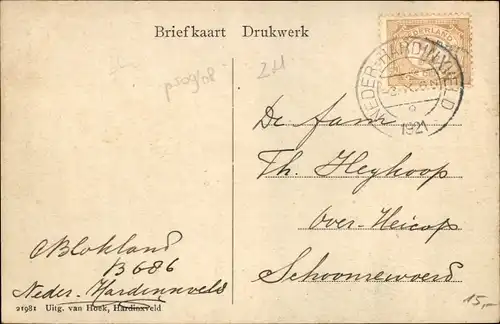 Briefkaart Drukwerk
NEDERLAND
NEDER-HARDINXVELD
1921
psog/08
ZH
De fam
Th. Heykoop
Over-Heicop
Schoonrewoerd
CBlokland
B686
Neder-Hardinxveld
21981 Uitg. van Hoek, Hardinxveld
15,-